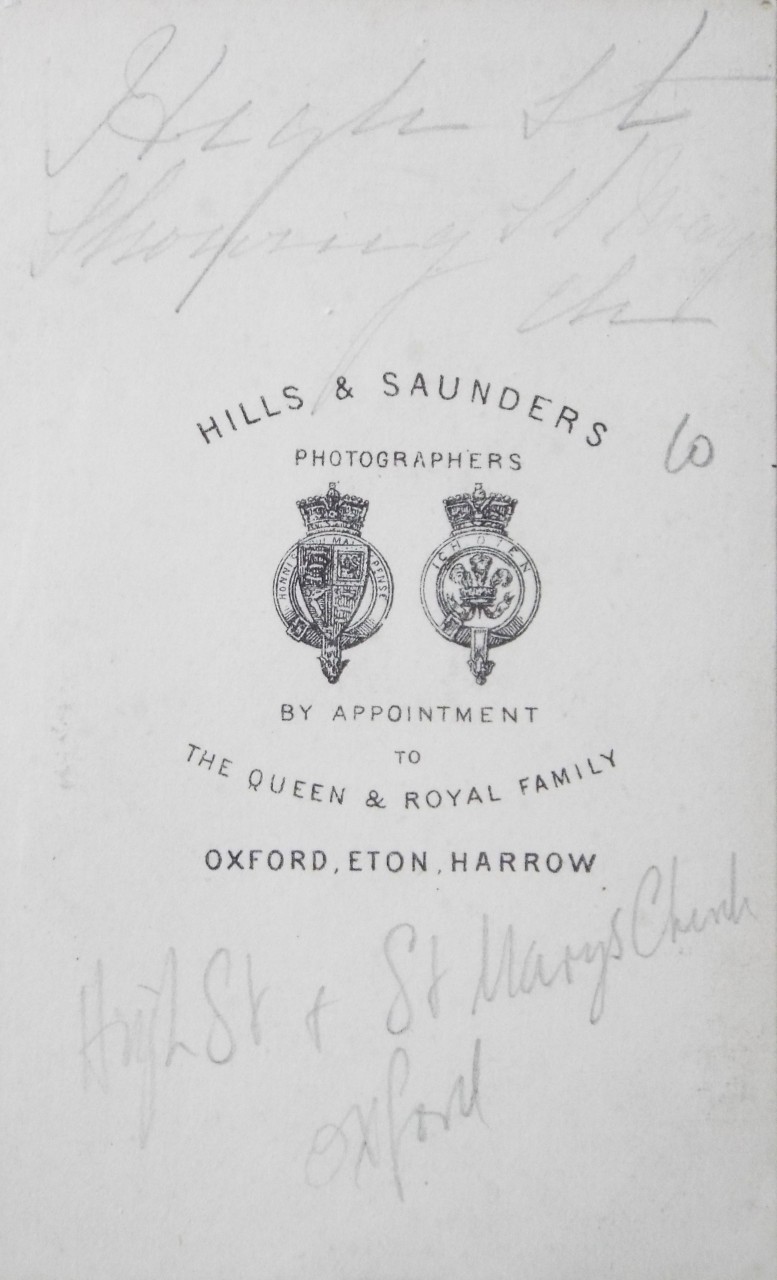 High St
Showing St Marys
Ch
HILLS & SAUNDERS
PHOTOGRAPHERS
60
HONNI SOI MAL PENSE
ICH DIEN
BY APPOINTMENT
TO
THE QUEEN & ROYAL FAMILY
OXFORD, ETON, HARROW
High St + St Marys Church
Oxford